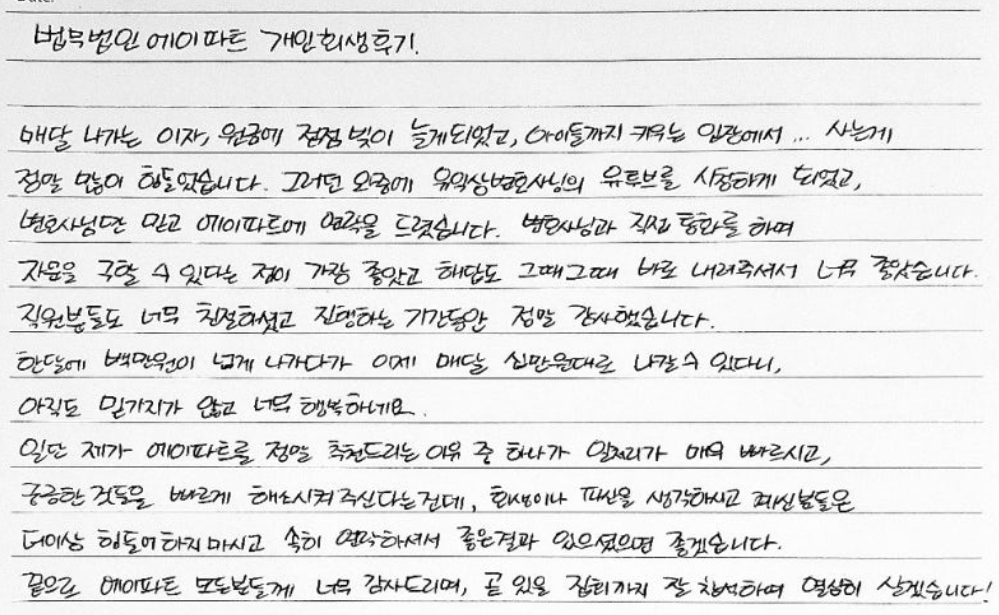 법무법인 에이파트 개인회생후기.
매달 나가는 이자, 원금에 점점 빚이 늘게되었고, 아이들까지 키우는 입장에서 ... 사는게
정말 많이 힘들었습니다. 그러던 와중에 유악상변호사님의 유튜브를 시청하게 되었고,
변호사님만 믿고 에이파트에 연락을 드렸습니다. 변호사님과 직접 통화를 하며
자문을 구할 수 있다는 점이 가장 좋았고 해답도 그때그때 바로 내려주셔서 너무 좋았습니다.
직원분들도 너무 친절하셨고 진행하는 기간동안 정말 감사했습니다.
한달에 백만원이 넘게 나가다가 이제 매달 십만원대로 나갈 수 있다니,
아직도 믿기지가 않고 너무 행복하네요.
일단 제가 에이파트를 정말 추천드리는 이유 중 하나가 일처리가 매우 빠르시고,
궁금한 것들을 빠르게 해소시켜 주신다는건데, 회생이나 파산을 생각하시고 계신분들은
더이상 힘들어하지마시고 속히 연락하셔서 좋은결과 있으셨으면 좋겠습니다.
끝으로 에이파트 모든분들께 너무 감사드리며, 곧 있을 집회까지 잘 참석하며 열심히 살겠습니다!